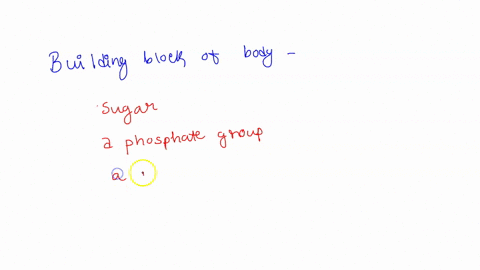 Building block of body -
sugar
a phosphate group
a